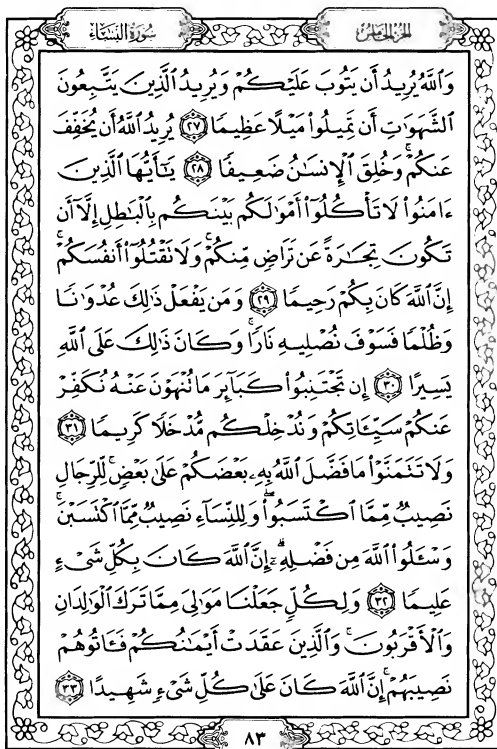 سُورَةُ النِّسَاءِ
الجُزْءُ الخَامِسُ
وَاللَّهُ يُرِيدُ أَن يَتُوبَ عَلَيْكُمْ وَيُرِيدُ الَّذِينَ يَتَّبِعُونَ
الشَّهَوَاتِ أَن تَمِيلُوا۟ مَيْلًا عَظِيمًا ٢٧ يُرِيدُ اللَّهُ أَن يُخَفِّفَ
عَنكُمْ وَخُلِقَ الْإِنسَٰنُ ضَعِيفًا ٢٨ يَٰٓأَيُّهَا الَّذِينَ
ءَامَنُوا۟ لَا تَأْكُلُوٓا۟ أَمْوَٰلَكُم بَيْنَكُم بِالْبَٰطِلِ إِلَّآ أَن
تَكُونَ تِجَٰرَةً عَن تَرَاضٍ مِّنكُمْ وَلَا تَقْتُلُوٓا۟ أَنفُسَكُمْ
إِنَّ اللَّهَ كَانَ بِكُمْ رَحِيمًا ٢٩ وَمَن يَفْعَلْ ذَٰلِكَ عُدْوَٰنًا
وَظُلْمًا فَسَوْفَ نُصْلِيهِ نَارًا وَكَانَ ذَٰلِكَ عَلَى اللَّهِ
يَسِيرًا ٣٠ إِن تَجْتَنِبُوا۟ كَبَآئِرَ مَا تُنْهَوْنَ عَنْهُ نُكَفِّرْ
عَنكُمْ سَيِّـَٔاتِكُمْ وَنُدْخِلْكُم مُّدْخَلًا كَرِيمًا ٣١
وَلَا تَتَمَنَّوْا۟ مَا فَضَّلَ اللَّهُ بِهِۦ بَعْضَكُمْ عَلَىٰ بَعْضٍ لِّلرِّجَالِ
نَصِيبٌ مِّمَّا اكْتَسَبُوا۟ وَلِلنِّسَآءِ نَصِيبٌ مِّمَّا اكْتَسَبْنَ
وَسْـَٔلُوا۟ اللَّهَ مِن فَضْلِهِۦٓ إِنَّ اللَّهَ كَانَ بِكُلِّ شَىْءٍ
عَلِيمًا ٣٢ وَلِكُلٍّ جَعَلْنَا مَوَٰلِىَ مِمَّا تَرَكَ الْوَٰلِدَانِ
وَالْأَقْرَبُونَ وَالَّذِينَ عَقَدَتْ أَيْمَٰنُكُمْ فَـَٔاتُوهُمْ
نَصِيبَهُمْ إِنَّ اللَّهَ كَانَ عَلَىٰ كُلِّ شَىْءٍ شَهِيدًا ٣٣
٨٣